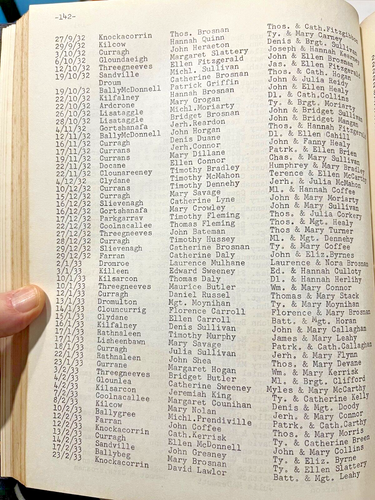 -142-
27/9/32 Knockacorrin Thos. Brosnan Thos. & Cath.
29/9/32 Kilcow Hannah Quinn Ty. & Mary Carney
3/10/32 Curragh John Heraeton Denis & Brgt. Sullivan
6/10/32 Gloundaeigh Margaret Slattery Joseph & Hannah
12/10/32 Threegneeves Ellen Fitzgerald John & Ellen Brosnan
19/10/32 Sandville Michl. Sullivan Jas. & Ellen
Droum Catherine Brosnan Thos. & Cath. Hogan
19/10/32 BallyMcDonnell Patrick Griffin John & Julia Reidy
21/10/32 Kilfalney Hannah Brosnan John & Ellen Healy
22/10/32 Arderone Mary Grogan Dl. & Cath.Collins
26/10/32 Lisataggle Michl.Moriarty Ty. & Brgt. Moriarty
28/10/32 Lisataggle Bridget Brosnan John & Bridget Sullivan
4/11/32 Gortshanafa Jer.Reardon John & Bridget Mangan
12/11/32 BallyMcDonnell John Horgan Thos. & Hannah
16/11/32 Curragh Denis Duane Dl. & Ellen Cahill
17/11/32 Currans Jerh.Connor John & Fanny Healy
19/11/32 Currans Mary Dillane Patrk. & Ellen Brien
22/11/32 Docane Ellen Connor Chas. & Mary Sullivan
4/12/32 Clounareeney Timothy Bradley Humphrey & Mary Bradley
10/12/32 Clydane Timothy McMahon Terence & Ellen
Currans Timothy Dennehy Jerh. & Julia McMahon
Curragh Mary Savage Ml. & Hannah Coffee
16/12/32 Slievenagh Catherine Lyne John & Mary Moriarty
16/12/32 Gortshanafa Mary Crowley John & Mary Sullivan
17/12/32 Parkgarrav Timothy Fleming Thos. & Julia Corkery
22/12/32 Coolnacallee Thomas Fleming Thos. & Mgt. Healy
Threegneeves John Bateman Thos & Mary Turner
28/12/32 Curragh Timothy Hussey Ml. & Mgt. Dennehy
29/12/32 Slievenagh Catherine Brosnan Ty. & Mary Coffee
29/12/32 Farran Catherine Daly John & Eliz.Byrnes
2/1/33 Dromroe Laurence Mulhane Laurence & Nora Brosnan
3/1/33 Killeen Edward Sweeney Ed. & Hannah Culloty
10/1/33 Kilsarcon Thomas Daly Dl. & Hannah Herlihy
10/1/33 Threegneeves Maurice Butler Wm. & Mary Connor
12/1/33 Curragh Daniel Russel Thomas & Mary Stack
13/1/33 Dromulton Mgt. Moynihan Ty. & Mary Moynihan
Clouncurrig Florence Carroll Florence & Mary Brosnan
Clydane Ellen Carroll Batt. & Mgt. Horan
Kilfalney Denis Sullivan John & Mary Callaghan
Rathnaleen Timothy Murphy James & Mary Leahy
Lisheenbawn Mary Savage Patrk. & Cath.Callaghan
Curragh Julia Sullivan Jerh. & Mary Flynn
Rathnaleen John Shea Thos. & Mary Devane
Currans Margaret Hogan Wm. & Mary Kerrisk
Threegneeves Bridget Butler Ml. & Brgt. Clifford
Gloulea Catherine Sweeney Myles & Mary McCarthy
Kilsarcon Jeremiah King Ty. & Catherine Kelly
Coolnacallee Margaret Counihan Denis & Mgt. Doody
Kilcow Mary Nolan Jerh. & Mary Connor
Ballygree Michl.Prendiville Patrk. & Cath.Carthy
Farran John Coffee Thos. & Mary Morris
Knockacorrin Cath.Kerrisk Ty. & Catherine Breen
Curragh Ellen McDonnell John & Mary Collins
Sandville John Gresney Ty. & Eliz. Byrne
Ballybeg Mary Brosnan Ty. & Ellen Slattery
Knockacorrin David Lawlor Batt. & Mgt. Leahy